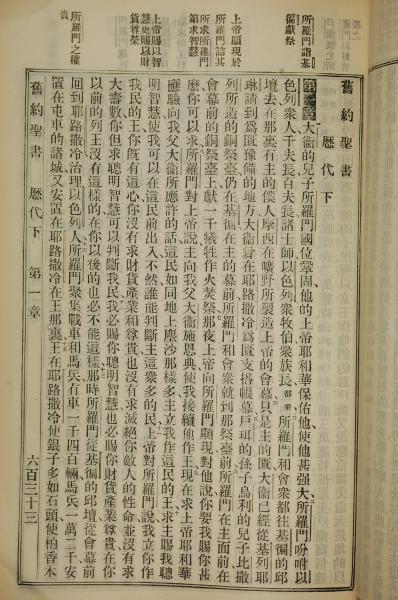 舊約聖書 歷代下
第一章大衞的兒子所羅門國位鞏固他的上帝耶和華保佑他使他甚强大所羅門吩咐以
色列衆人千夫長百夫長諸士師以色列衆牧伯衆族長都來所羅門和會衆都往基遍的邱
壇去在那裏有主的僕人摩西在曠野所製造上帝的會幕只是主的匱大衞已經從基列耶
琳請到爲匱豫備的地方大衞曾在耶路撒冷爲匱支搭帳幕戶珥的孫子烏利的兒子比撒
列所造的銅祭壇仍在基遍在主的幕前所羅門和會衆就到那祭壇前所羅門在主面前在
會幕前的銅祭壇上獻一千犧牲作火焚祭那夜上帝向所羅門顯現對他說你要我賜你甚
麽你可以求所羅門對上帝說主向我父大衞施恩典使我接續他作王現在求上帝耶和華
應驗向我父大衞所應許的話這民如同地上塵沙那樣多主立我作這民的王求主賜我聰
明智慧使我可以在這民前出入不然誰能判斷主這衆多的民上帝對所羅門說我立你作
我民的王你旣有這心你沒有求財貨產業和尊貴也沒有求滅絕你敵人的性命並沒有求
大壽數但求聰明智慧可以判斷我民我必賜你聰明智慧也必賜你財貨產業尊貴在你
以前的列王沒有這樣的在你以後的也必不能這樣那時所羅門從基遍的邱壇從會幕前
回到耶路撒冷治理以色列人所羅門聚集戰車和馬兵有車一千四百輛馬兵一萬二千安
置在屯車的諸城又安置在耶路撒冷在王那裏王在耶路撒冷使銀子多如石頭使柏香木
舊約聖書 歷代下 第一章 六百三十三
所羅門詣基
遍獻祭
上帝顯現於
所羅門詰其
所求所羅門
第求智慧
上帝賜以智
慧更賜以財
貨尊榮
所羅門之權
貴